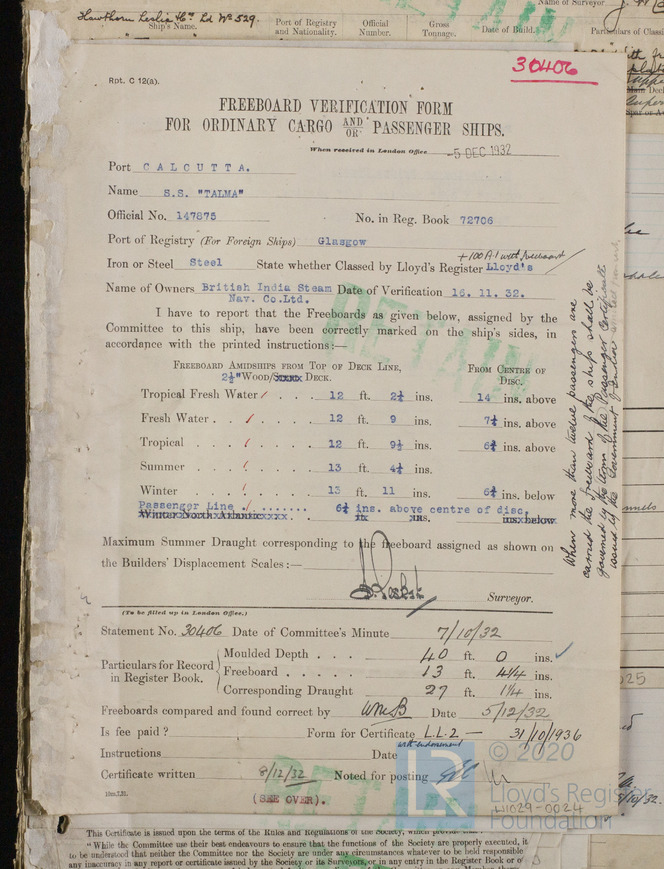 Hawthorn Leslie & Co Ld No 529.
Ship's Name.
Port of Registry and Nationality.
Official Number.
Gross Tonnage.
Date of Build.
Name of Surveyor
Particulars of Classi
30406
Rpt. C 12(a).
FREEBOARD VERIFICATION FORM
FOR ORDINARY CARGO AND/OR PASSENGER SHIPS.
When received in London Office -5 DEC 1932
Port CALCUTTA.
Name S.S. "TALMA"
Official No. 147875 No. in Reg. Book 72706
Port of Registry (For Foreign Ships) Glasgow
+100A1 with freeboard
Iron or Steel Steel State whether Classed by Lloyd's Register Lloyd's
Name of Owners British India Steam Date of Verification 16. 11. 32.
Nav. Co.Ltd.
I have to report that the Freeboards as given below, assigned by the
Committee to this ship, have been correctly marked on the ship's sides, in
accordance with the printed instructions:—
FREEBOARD AMIDSHIPS FROM TOP OF DECK LINE,
2½" WOOD/STEEL DECK.
FROM CENTRE OF DISC.
Tropical Fresh Water . . . . 12 ft. 2¾ ins. 14 ins. above
Fresh Water . . . . . 12 ft. 9 ins. 7½ ins. above
Tropical . . . . . 12 ft. 9½ ins. 6¾ ins. above
Summer . . . . . 13 ft. 4¼ ins.
Winter . . . . . 13 ft. 11 ins. 6¾ ins. below
Passenger Line ........ 6¾ ins. above centre of disc.
Winter North Atlantic . ft. ins. ins. below
Maximum Summer Draught corresponding to the freeboard assigned as shown on
the Builders' Displacement Scales:—
Surveyor.
(To be filled up in London Office.)
Statement No. 30406 Date of Committee's Minute 7/10/32
Particulars for Record in Register Book.
Moulded Depth . . . 40 ft. 0 ins.
Freeboard . . . . . 13 ft. 4¼ ins.
Corresponding Draught 27 ft. 1¼ ins.
Freeboards compared and found correct by WMB Date 5/12/32
Is fee paid? Form for Certificate L.L.2 — 31/10/1936
with endorsement
Instructions Date
Certificate written 8/12/32 Noted for posting
(SEE OVER).
When more than twelve passengers are
carried the freeboard of the ship shall be
governed by the terms of the Passenger Certificate
issued by the Government of India
RETAIN
© 2020
Lloyd's Register
Foundation
W1029-0024
This Certificate is issued upon the terms of the Rules and Regulations of the Society, which provide that:—
"While the Committee use their best endeavours to ensure that the functions of the Society are properly executed, it
to be understood that neither the Committee nor the Society are under any circumstances whatever to be held responsible
any inaccuracy in any report or certificate issued by the Society or its Surveyors, or in any entry in the Register Book or o